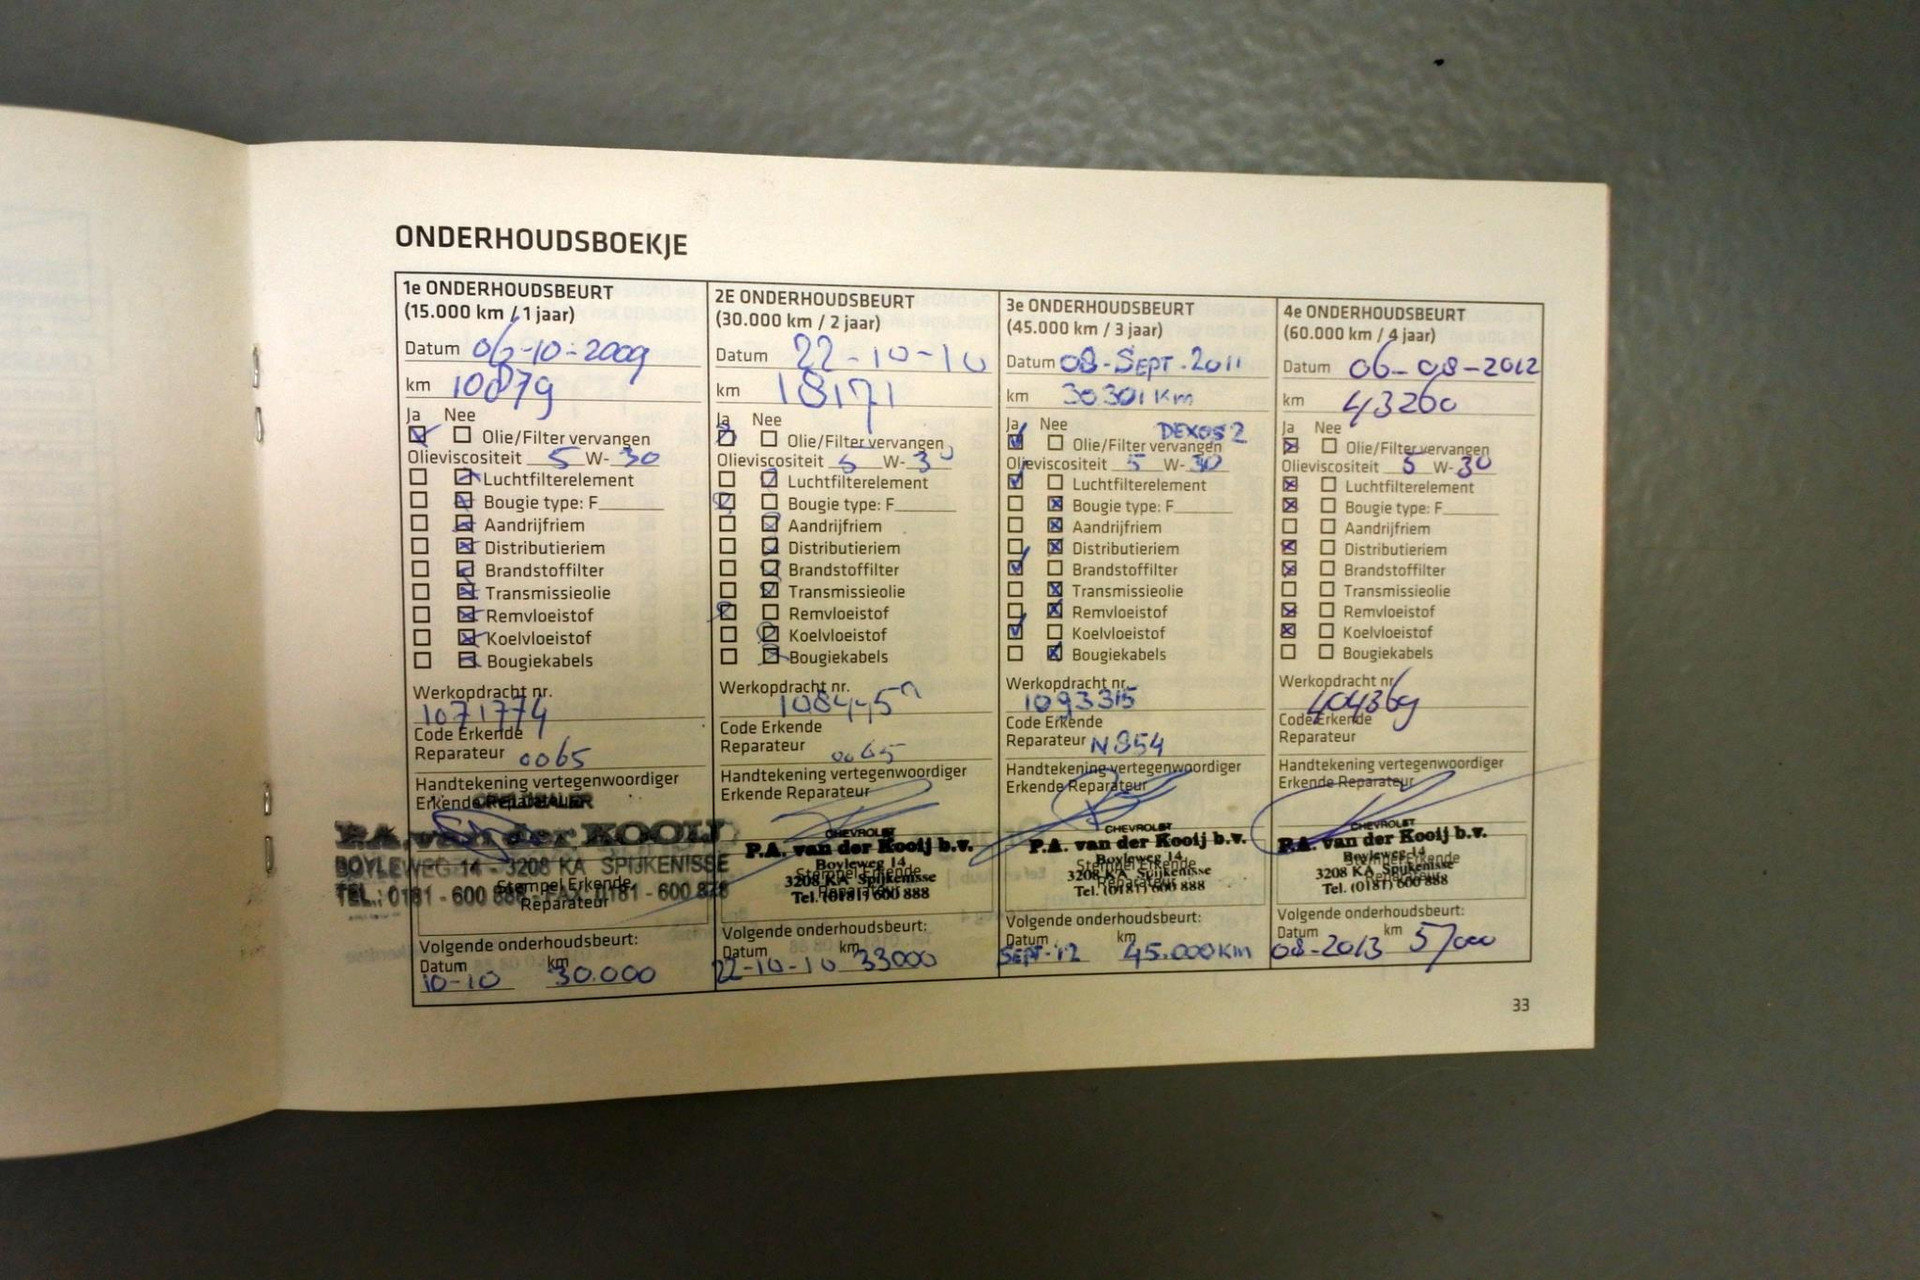 ONDERHOUDSBOEKJE
1e ONDERHOUDSBEURT
(15.000 km / 1 jaar)
Datum 06-10-2009
km 10879
Ja Nee
Olie/Filter vervangen
Olieviscositeit 5 W- 30
Luchtfilterelement
Bougie type: F
Aandrijfriem
Distributieriem
Brandstoffilter
Transmissieolie
Remvloeistof
Koelvloeistof
Bougiekabels
Werkopdracht nr.
1071774
Code Erkende
Reparateur 0065
Handtekening vertegenwoordiger
Erkende Reparateur
OPEL DEALER
P.A. van der KOOIJ
BOYLEWEG 14 - 3208 KA SPIJKENISSE
TEL.: 0181 - 600 888 - FAX 0181 - 600 828
Stempel Erkende
Reparateur
Volgende onderhoudsbeurt:
Datum km
10-10 30.000
2E ONDERHOUDSBEURT
(30.000 km / 2 jaar)
Datum 22-10-10
km 18171
Ja Nee
Olie/Filter vervangen
Olieviscositeit 5 W- 30
Luchtfilterelement
Bougie type: F
Aandrijfriem
Distributieriem
Brandstoffilter
Transmissieolie
Remvloeistof
Koelvloeistof
Bougiekabels
Werkopdracht nr.
Code Erkende
Reparateur 0065
Handtekening vertegenwoordiger
Erkende Reparateur
CHEVROLET
P.A. van der Kooij b.v.
Boyleweg 14
Stempel Erkende
3208 KA Spijkenisse
Reparateur
Tel. (0181) 600 888
Volgende onderhoudsbeurt:
Datum km
22-10-10 33000
3e ONDERHOUDSBEURT
(45.000 km / 3 jaar)
Datum 08-SEPT.2011
km 30301 Km
Ja Nee DEXOS 2
Olie/Filter vervangen
Olieviscositeit 5 W- 30
Luchtfilterelement
Bougie type: F
Aandrijfriem
Distributieriem
Brandstoffilter
Transmissieolie
Remvloeistof
Koelvloeistof
Bougiekabels
Werkopdracht nr.
1093315
Code Erkende
Reparateur N854
Handtekening vertegenwoordiger
Erkende Reparateur
CHEVROLET
P.A. van der Kooij b.v.
Boyleweg 14
Stempel Erkende
3208 KA Spijkenisse
Reparateur
Tel. (0181) 600 888
Volgende onderhoudsbeurt:
Datum km
SEPT-12 45.000 KM
4e ONDERHOUDSBEURT
(60.000 km / 4 jaar)
Datum 06-08-2012
km 43260
Ja Nee
Olie/Filter vervangen
Olieviscositeit 5 W- 30
Luchtfilterelement
Bougie type: F
Aandrijfriem
Distributieriem
Brandstoffilter
Transmissieolie
Remvloeistof
Koelvloeistof
Bougiekabels
Werkopdracht nr.
404369
Code Erkende
Reparateur
Handtekening vertegenwoordiger
Erkende Reparateur
CHEVROLET
P.A. van der Kooij b.v.
Boyleweg 14
Stempel Erkende
3208 KA Spijkenisse
Reparateur
Tel. (0181) 600 888
Volgende onderhoudsbeurt:
Datum km
08-2013 57000
33